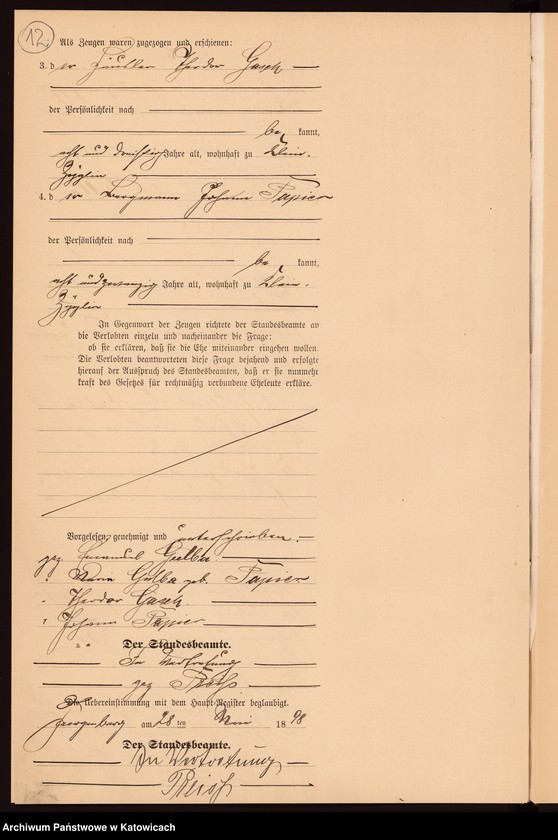 12
Als Zeugen waren zugezogen und erschienen:
3. der Häusler Theodor Gasch
der Persönlichkeit nach
be kannt,
acht und dreißig Jahre alt, wohnhaft zu Klein-
Zyglin
4. der Bergmann Johann Papier
der Persönlichkeit nach
be kannt,
acht und zwanzig Jahre alt, wohnhaft zu Klein-
Zyglin
In Gegenwart der Zeugen richtete der Standesbeamte an
die Verlobten einzeln und nacheinander die Frage:
ob sie erklären, daß sie die Ehe miteinander eingehen wollen.
Die Verlobten beantworteten diese Frage bejahend und erfolgte
hierauf der Ausspruch des Standesbeamten, daß er sie nunmehr
kraft des Gesetzes für rechtmäßig verbundene Eheleute erkläre.
Vorgelesen, genehmigt und unterschrieben.
gez. Emanuel Gulba.
" Maria Gulba geb. Papier
" Theodor Gasch.
" Johann Papier
Der Standesbeamte.
In Vertretung
gez
Uebereinstimmung mit dem Haupt-Register beglaubigt.
Georgenberg am 28 ten Mai 1898
Der Standesbeamte.
In Vertretung